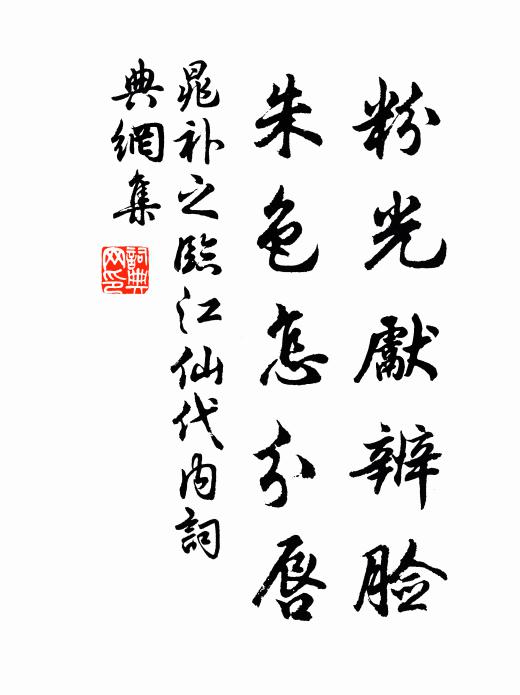 粉光獻辨脸
朱色怎分唇
晁补之臨江仙代内詞
典網集
詞典
网印